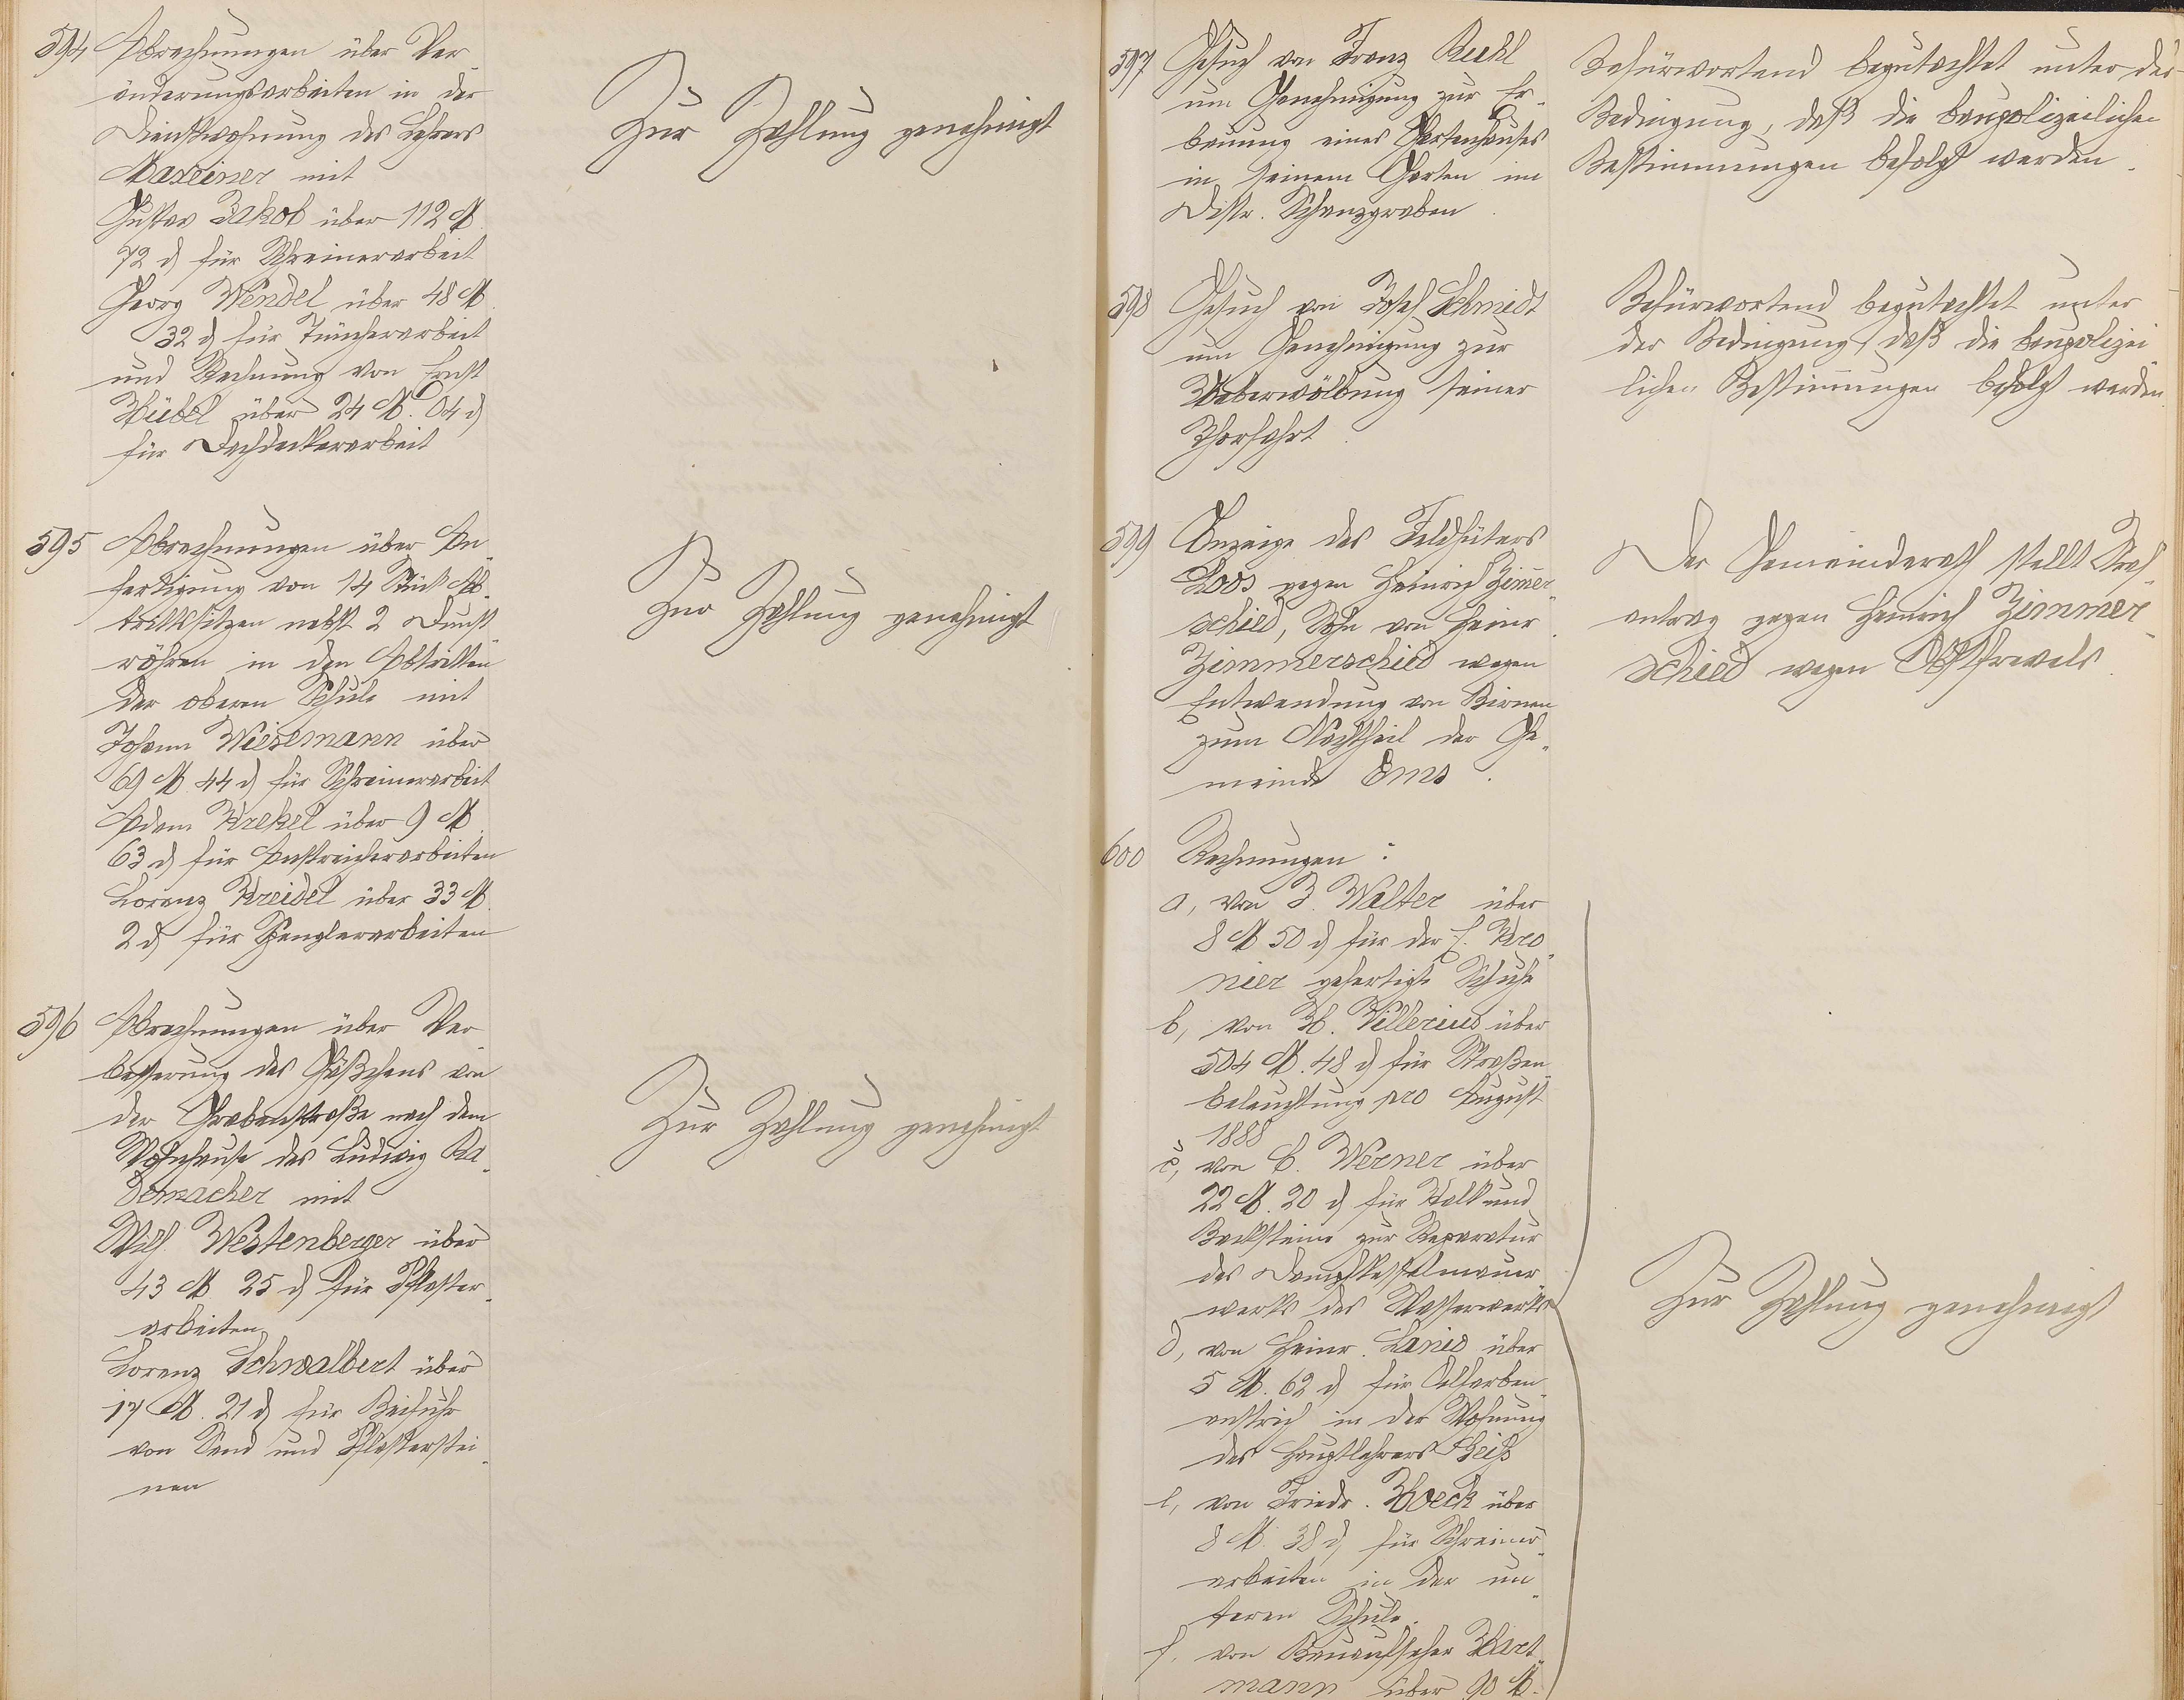 594 Abrechnungen über Ver-
änderungsarbeiten in der
Dienstwohnung des Lehrers
Maxeiner mit
Gustav Jakob über 112 M
72 d für Schreinerarbeit
Georg Wendel über 48 M.
32 d für Tüncherarbeit
und Rechnung von Ernst
über 24 M. 04 d
für Dachdeckerarbeit
Zur Zahlung genehmigt
595 Abrechnungen über An-
fertigung von 14 Stück Ab-
trittssitzen nebst 2 Dunst
röhren in den Abtritten
der oberen Schule mit
Johann Wiesemann über
69 M. 44 d für Schreinerarbeit
Adam Krekel über 9 M.
63 d für Anstreicherarbeiten
Lorenz Kreidel über 33 M.
2 d für Spenglerarbeiten
Zur Zahlung genehmigt
596 Abrechnungen über Ver-
besserung des Gäßchens von
der Grabenstraße nach dem
Wohnhause des Ludwig Ra-
demacher mit
Wilh. Westenberger über
43 M. 25 d für Pflaster-
arbeiten
Lorenz Schwalbert über
17 M. 21 d für Beifuhr
von Sand und Pflasterstei-
nen
Zur Zahlung genehmigt
597 Gesuch von Franz Ruehl
um Genehmigung zur Er-
bauung eines Gartenhauses
in seinem Garten im
Distr. Schanzgraben.
Befürwortend begutachtet unter der
Bedingung, daß die baupolizeilichen
Bestimmungen befolgt werden.
598 Gesuch von Josef Schmidt
um Genehmigung zur
Ueberwölbung seiner
Thorfahrt.
Befürwortend begutachtet unter
der Bedingung, daß die baupolizei
lichen Bestimmungen befolgt werden.
599 Anzeige des Feldhüters
Loos gegen Heinrich Zimmer-
schied, Sohn von Heinr.
Zimmerschied wegen
Entwendung von Birnen
zum Nachtheil der Ge-
meinde Ems.
Der Gemeinderath stellt Straf-
antrag gegen Heinrich Zimmer-
schied wegen Obstfrevels.
600 Rechnungen:
a, von J. Walter über
8 M 50 d für der E. Kro-
nier gefertigte Schuhe
b, von H. Villerius über
504 M. 48 d für Straßen-
beleuchtung pro August
1888
c, von C. Werner über
22 M. 20 d für Kalk und
Backsteine zur Reparatur
des Dampfkesselmauer-
werks des Wasserwerks
d, von Heinr. Lanio über
5 M. 62 d für Oelfarben-
anstrich in der Wohnung
des Hauptlehrers Theis
e, von Friedr. Hoeck über
8 M. 38 d für Schreiner-
arbeiten in der un-
teren Schule.
f, von Bauaufseher Hart-
mann über 90 M.
Zur Zahlung genehmigt